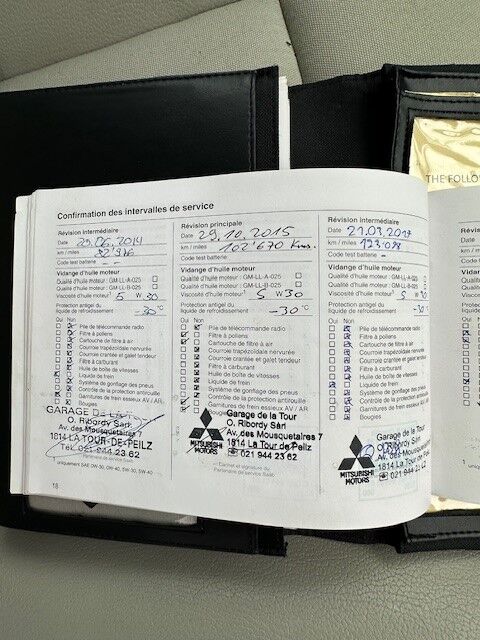 THE FOLLO
Confirmation des intervalles de service
Révision intermédiaire
Date 2014
km / miles
Code test batterie --
Vidange d'huile moteur
Qualité d'huile moteur: GM-LL-A-025
Qualité d'huile moteur: GM-LL-B-025
Viscosité d'huile moteur¹ 5 W 30
Protection antigel du
liquide de refroidissement -30 °C
Oui Non
Pile de télécommande radio
Filtre à pollens
Cartouche de filtre à air
Courroie trapézoïdale nervurée
Courroie crantée et galet tendeur
Filtre à carburant
Huile de boîte de vitesses
Liquide de frein
Système de gonflage des pneus
Contrôle de la protection antirouille
Garnitures de frein essieux AV / AR
Bougies
GARAGE DE LA TOUR
O. Ribordy Sàrl
Av. des Mousquetaires 7
1814 LA TOUR-DE-PEILZ
Tél. 021 944 23 62
Partenaire de service Saab
uniquement SAE 0W-30, 0W-40, 5W-30, 5W-40
18
Révision principale
Date 29.10.2015
km / miles 102'670 Kms.
Code test batterie:
Vidange d'huile moteur
Qualité d'huile moteur: GM-LL-A-025
Qualité d'huile moteur: GM-LL-B-025
Viscosité d'huile moteur¹ 5 W 30
Protection antigel du
liquide de refroidissement -30 °C
Oui Non
Pile de télécommande radio
Filtre à pollens
Cartouche de filtre à air
Courroie trapézoïdale nervurée
Courroie crantée et galet tendeur
Filtre à carburant
Huile de boîte de vitesses
Liquide de frein
Système de gonflage des pneus
Contrôle de la protection antirouille
Garnitures de frein essieux AV / AR
Bougies
MITSUBISHI
MOTORS
Garage de la Tour
O. Ribordy Sàrl
Av. des Mousquetaires 7
1814 La Tour de Peilz
021 944 23 62
Cachet et signature du
Partenaire de service Saab
Révision intermédiaire
Date 21.03.2017
km / miles
Code test batterie -
Vidange d'huile moteur
Qualité d'huile moteur: GM-LL-A-025
Qualité d'huile moteur: GM-LL-B-025
Viscosité d'huile moteur¹ 5 W 30
Protection antigel du
liquide de refroidissement -30 °C
Oui Non
Pile de télécommande radio
Filtre à pollens
Cartouche de filtre à air
Courroie trapézoïdale nervurée
Courroie crantée et galet tendeur
Filtre à carburant
Huile de boîte de vitesses
Liquide de frein
Système de gonflage des pneus
Contrôle de la protection antirouille
Garnitures de frein essieux AV / AR
Bougies
MITSUBISHI
MOTORS
Garage de la Tour
Av. des Mousquetaires
1814 La Tour de Peilz
021 944 23 62